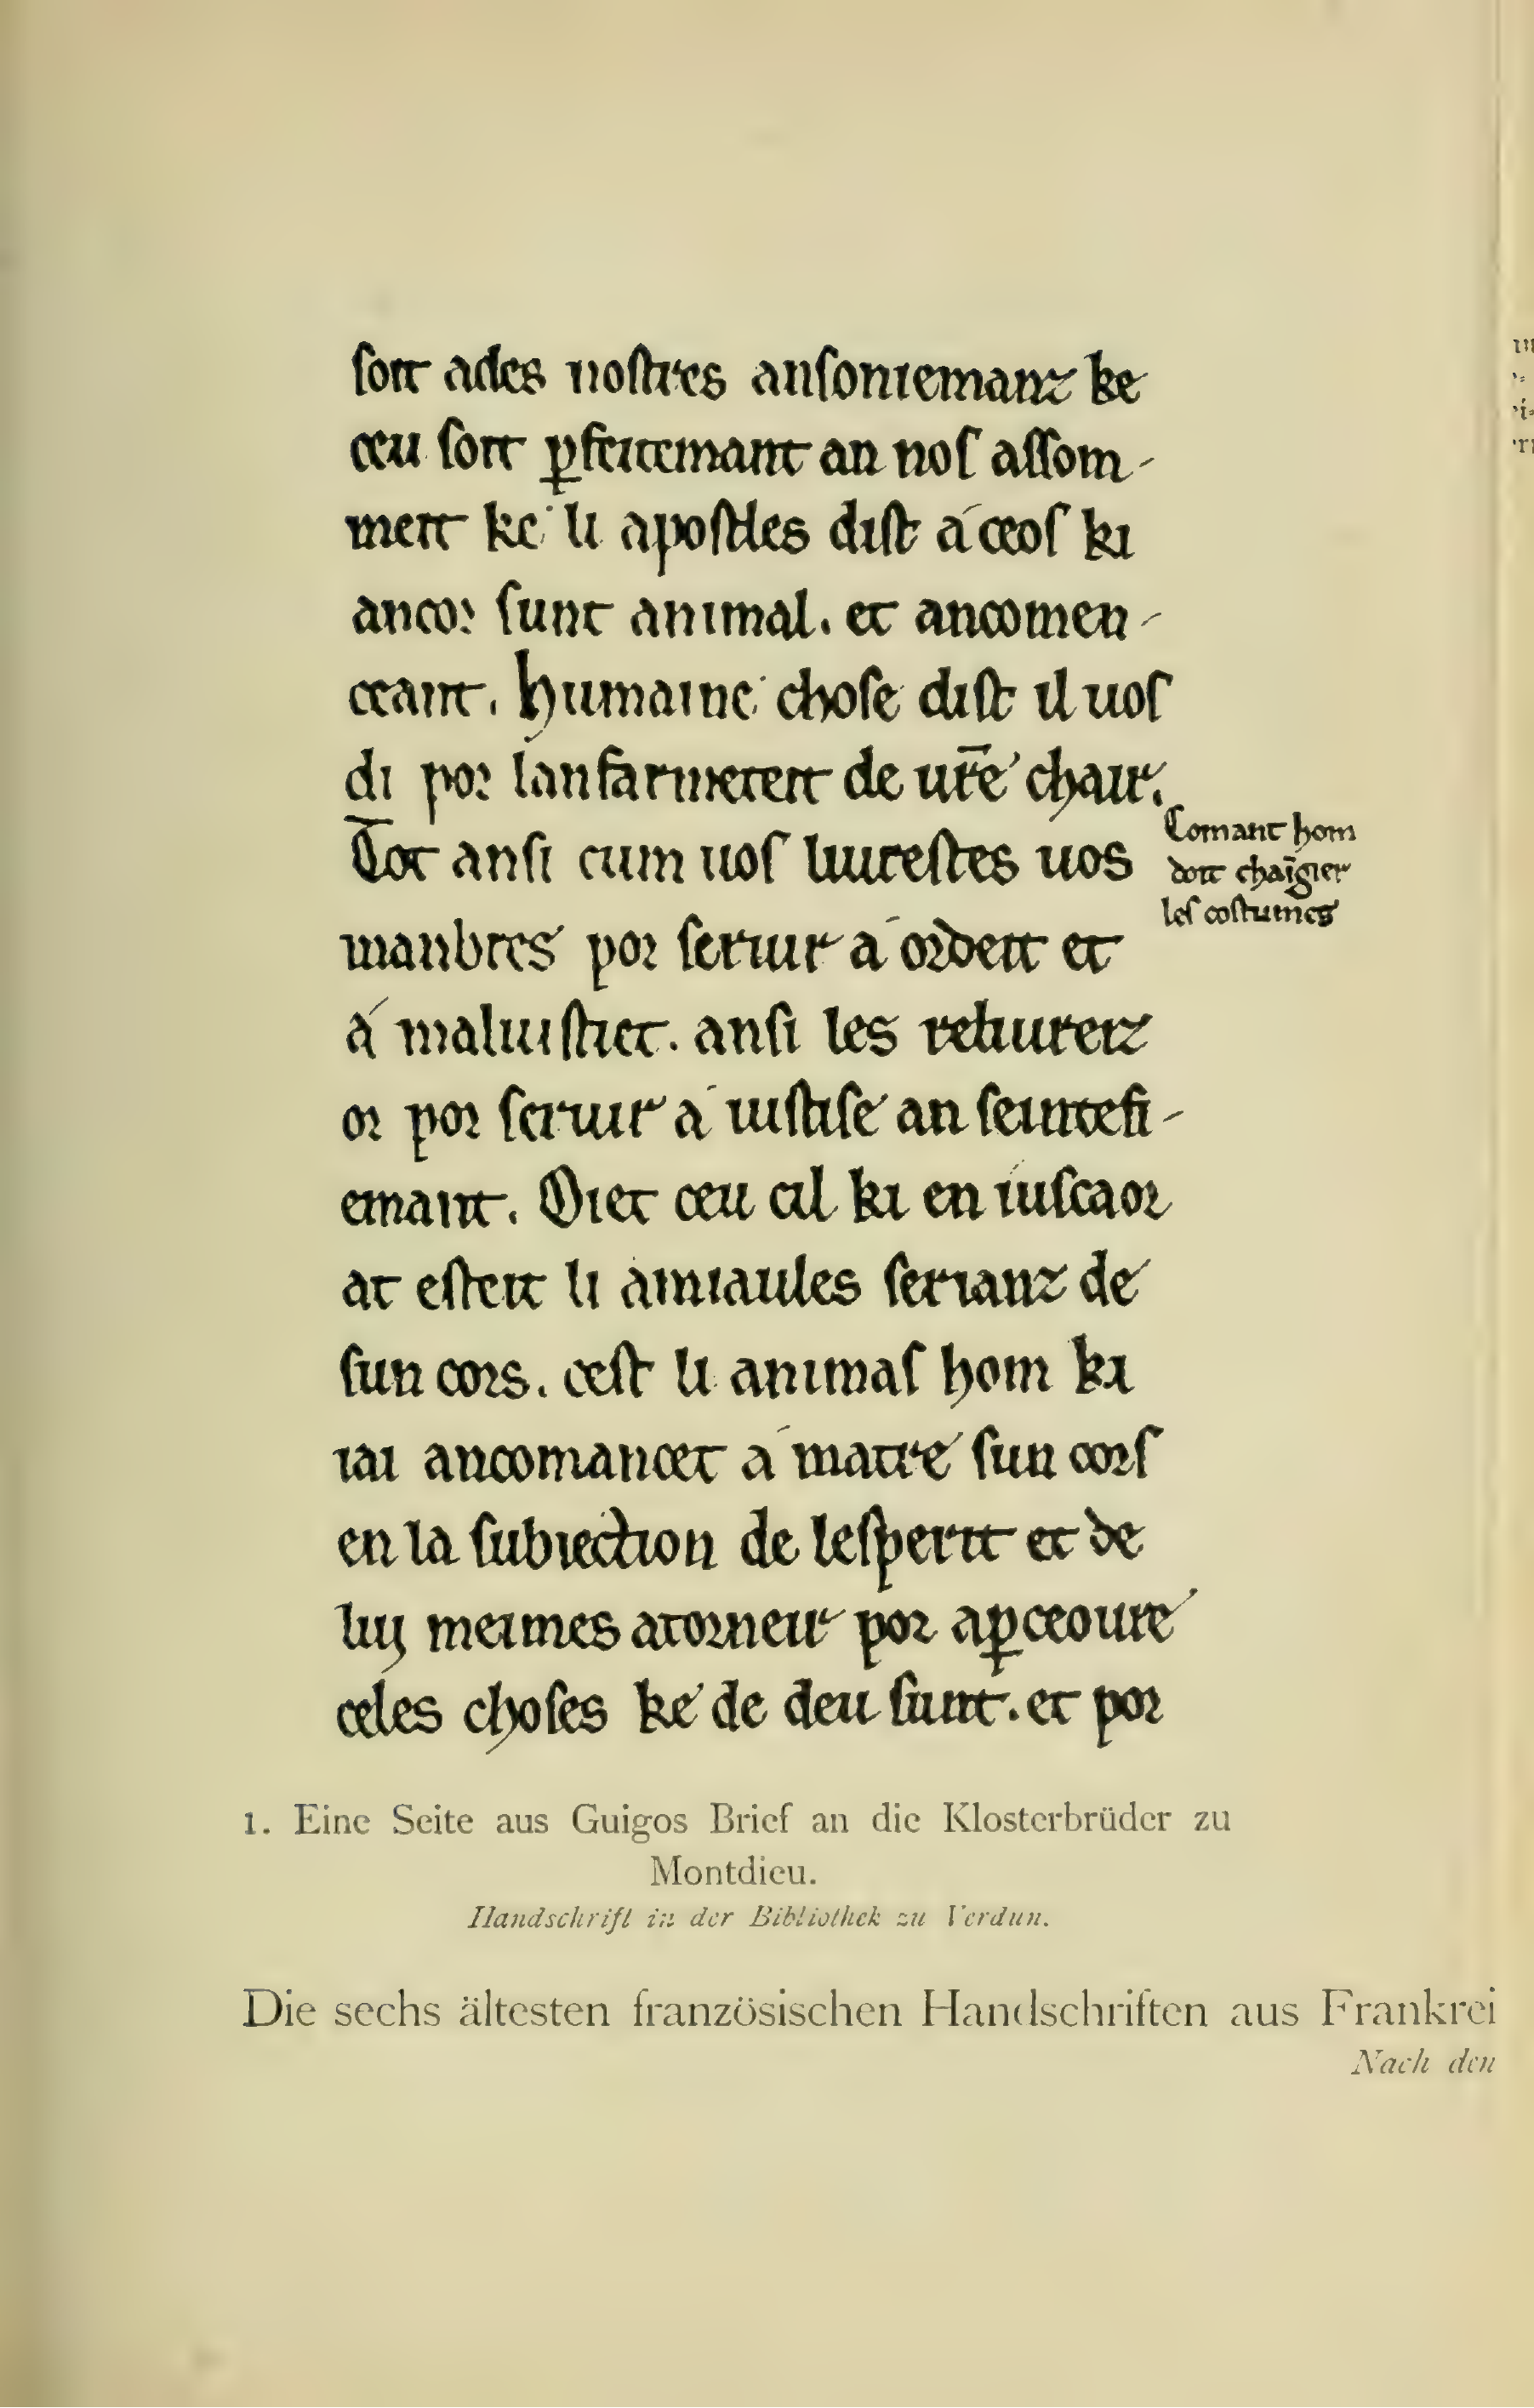 ſoit ades noſtres anſoniemanz ke
ceu ſoit ꝑfeitemant an noſ aſſom-
meit ke li apoſtles diſt á ceoſ ki
ancor ſunt animal. et ancomen-
ceant. humaine choſe diſt il uoſ
di por lanfarmeteit de ur̄e chair.
Tot anſi cum uoſ liureſtes uos
manbres por ſeruir á ordeit et
á maluiſtiet. anſi les reliureiz
or por ſeruir á iuſtiſe an ſeintefi-
emant. Oiet ceu cil ki en iuſcaor
at eſteit li amiaules ſerianz de
ſun cors. ceſt li animaſ hom ki
iai ancomancet á matre ſun corſ
en la ſubiection de leſperit et de
luy meimes atorneir por aꝑceoure
celes choſes ke de deu ſunt. et por
Comant hom
doit chaīgier
leſ coſtumes
1. Eine Seite aus Guigos Brief an die Klosterbrüder zu
Montdieu.
Handschrift in der Bibliothek zu Verdun.
Die sechs ältesten französischen Handschriften aus Frankrei
Nach den